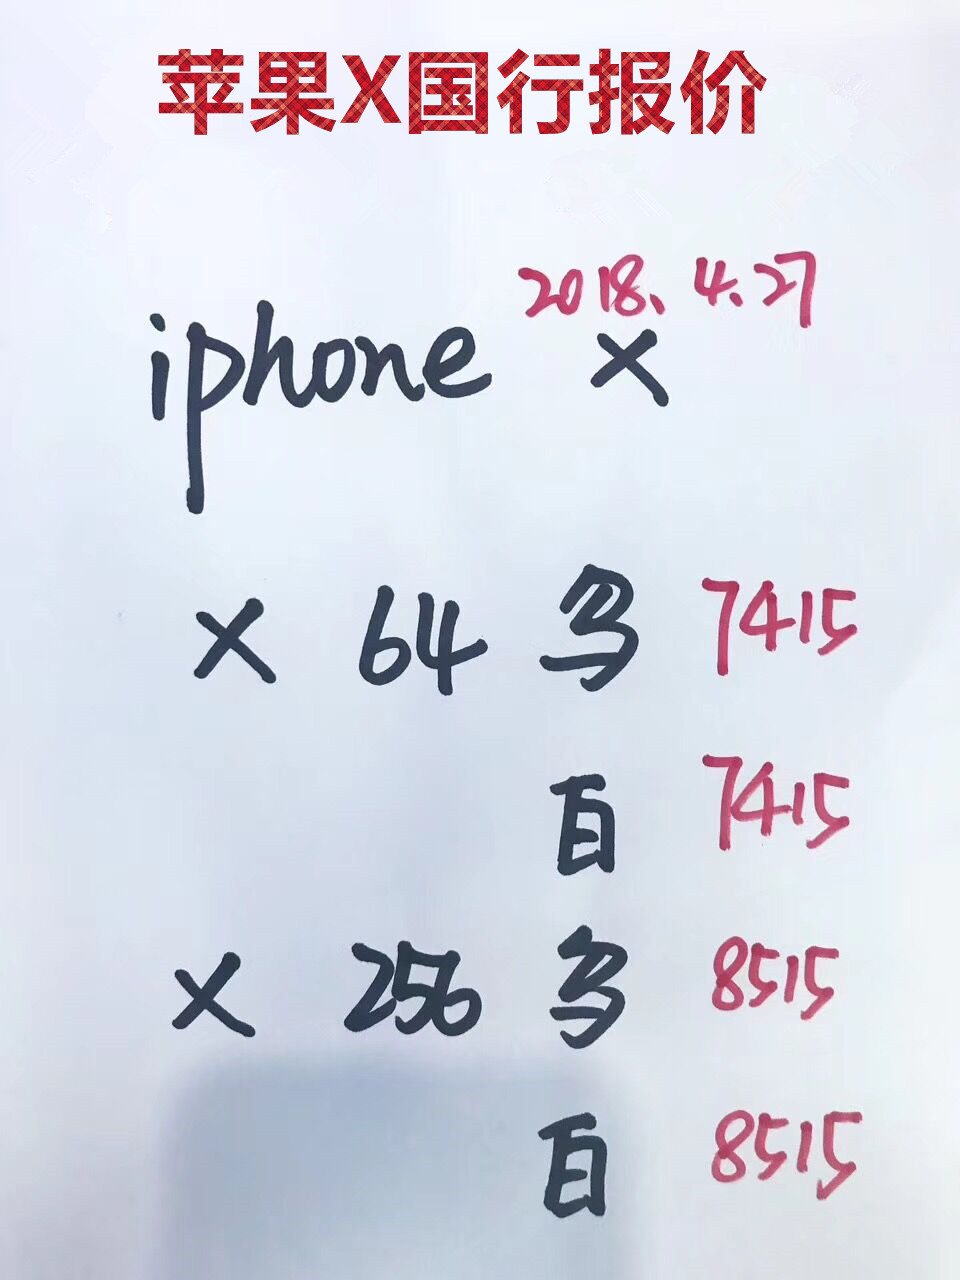 苹果X国行报价
2018.4.27
iphone X
X 64 乌 7415
百 7415
X 256 乌 8515
百 8515